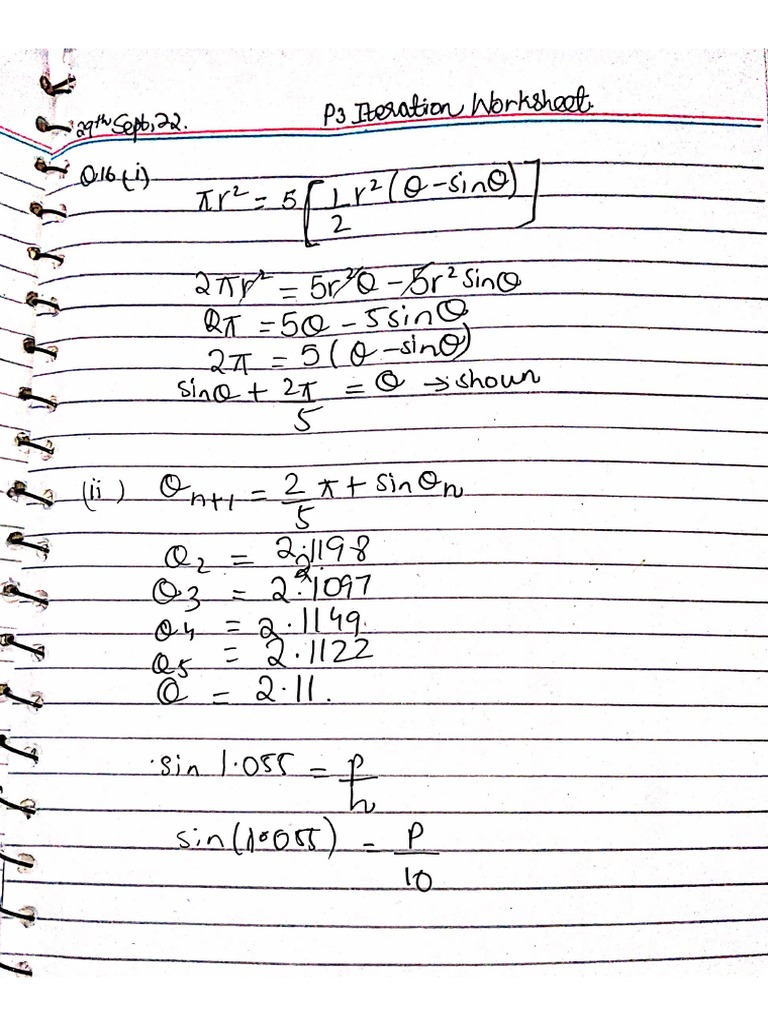 29th Sept, 22.
P3 Iteration Worksheet.
Q16 (i)
πr² = 5 [ 1/2 r² (θ - sinθ) ]
2πr² = 5r²θ - 5r² sinθ
2π = 5θ - 5 sinθ
2π = 5 (θ - sinθ)
sinθ + 2π/5 = θ → shown
(ii) θn+1 = 2/5 π + sin θn
θ2 = 2.1198
θ3 = 2.1097
θ4 = 2.1149
θ5 = 2.1122
θ = 2.11.
sin 1.055 = P/h
sin(1.055) = P/10